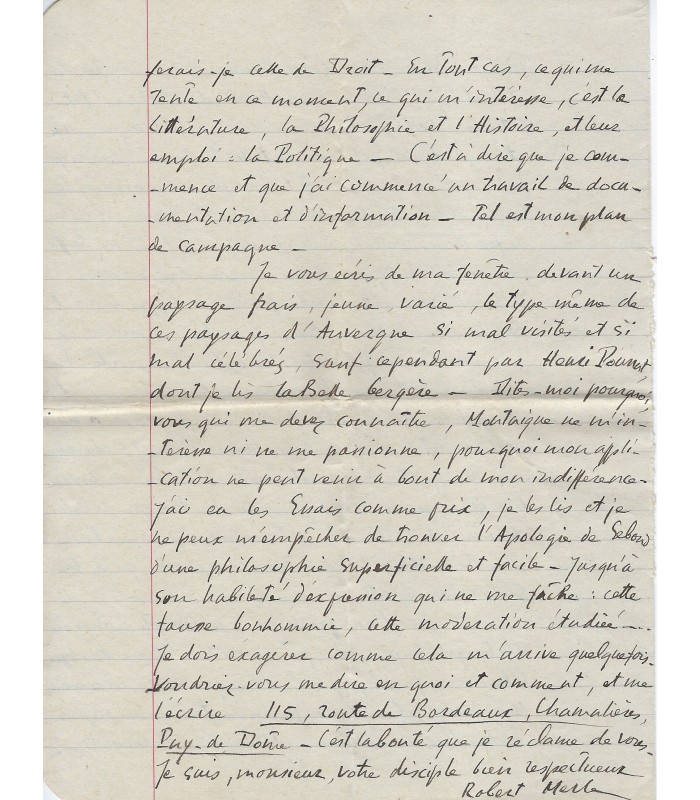 ferais-je celle de Droit - En tout cas, ce qui me
tente en ce moment, ce qui m'intéresse, c'est la
littérature, la Philosophie et l'Histoire, et leur
emploi : la Politique - C'est à dire que je com-
-mence et que j'ai commencé un travail de docu-
-mentation et d'information - Tel est mon plan
de campagne -
Je vous écris de ma fenêtre devant un
paysage frais, jeune, varié, le type même de
ces paysages d'Auvergne si mal visités et si
mal célébrés, sauf cependant par Henri Pourrat
dont je lis la Belle bergère - Dites-moi pourquoi,
vous qui me devez connaître, Montaigne ne m'in-
-téresse ni ne me passionne, pourquoi mon appli-
-cation ne peut venir à bout de mon indifférence -
J'ai eu les Essais comme prix, je les lis et je
ne peux m'empêcher de trouver l'Apologie de Sebond
d'une philosophie superficielle et facile - Jusqu'à
son habileté d'expression qui ne me fâche : cette
fausse bonhommie, cette modération étudiée ....
Je dois exagérer comme cela m'arrive quelquefois -
Voudriez-vous me dire en quoi et comment, et me
l'écrire 115, route de Bordeaux, Chamalières,
Puy-de Dôme - C'est la bonté que je réclame de vous -
Je suis, monsieur, votre disciple bien respectueux
Robert Merle